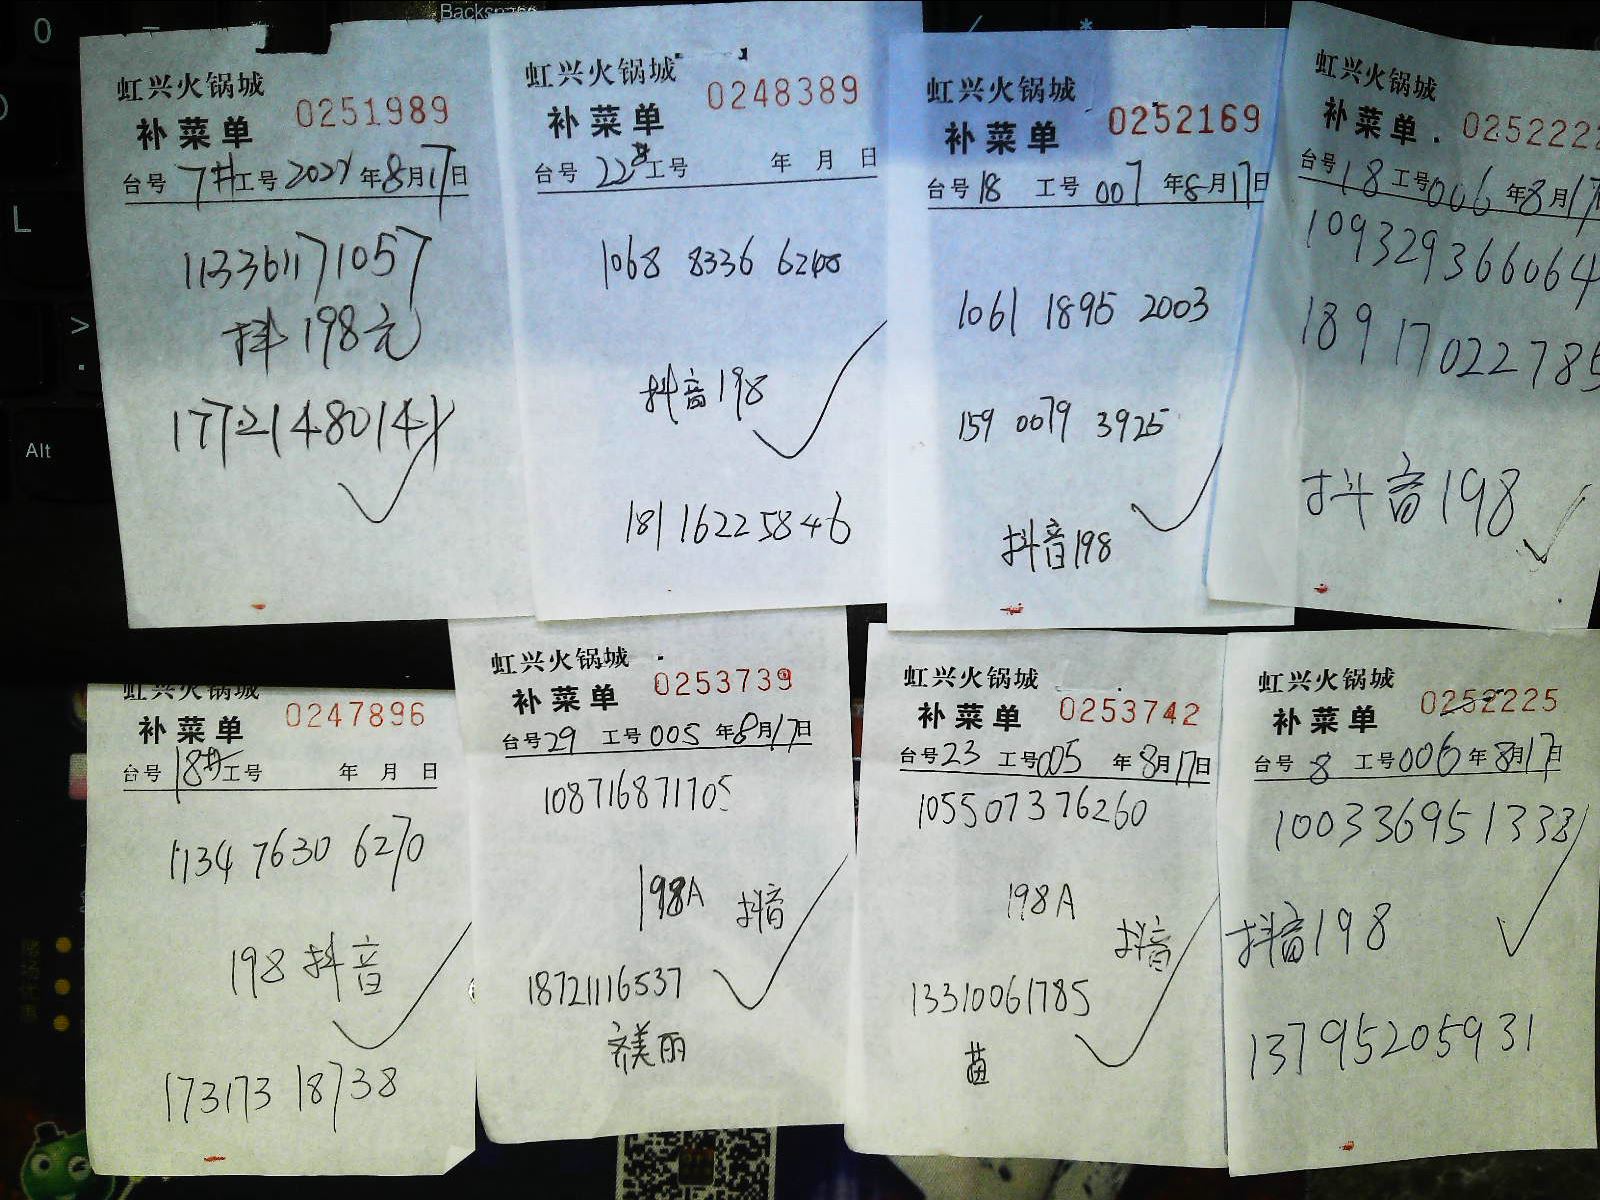 虹兴火锅城
0251989
补菜单
台号 7# 工号 2021 年 8 月 17 日
113361171057
抖 198元
虹兴火锅城
0248389
补菜单
台号 22# 工号 年 月 日
1068 8336 6248
抖音198
181 1622 5846
虹兴火锅城
0252169
补菜单
台号 18 工号 007 年 8 月 17 日
1061 1895 2003
159 0079 3925
抖音198
虹兴火锅城
补菜单
台号 18 工号 006 年 8 月 17
109329366064
抖音198
虹兴火锅城
0247896
补菜单
台号 18# 工号 年 月 日
1134 7630 6270
198 抖音
173173 18738
虹兴火锅城
0253739
补菜单
台号 29 工号 005 年 8 月 17 日
108716871705
198A 抖音
18721116537
齐美丽
虹兴火锅城
0253742
补菜单
台号 23 工号 005 年 8 月 17 日
105507376260
198A
抖音
13310061785
虹兴火锅城
0252225
补菜单
台号 8 工号 006 年 8 月 17 日
100336951338
抖音198
13795205931
Backspace
Alt
L
0